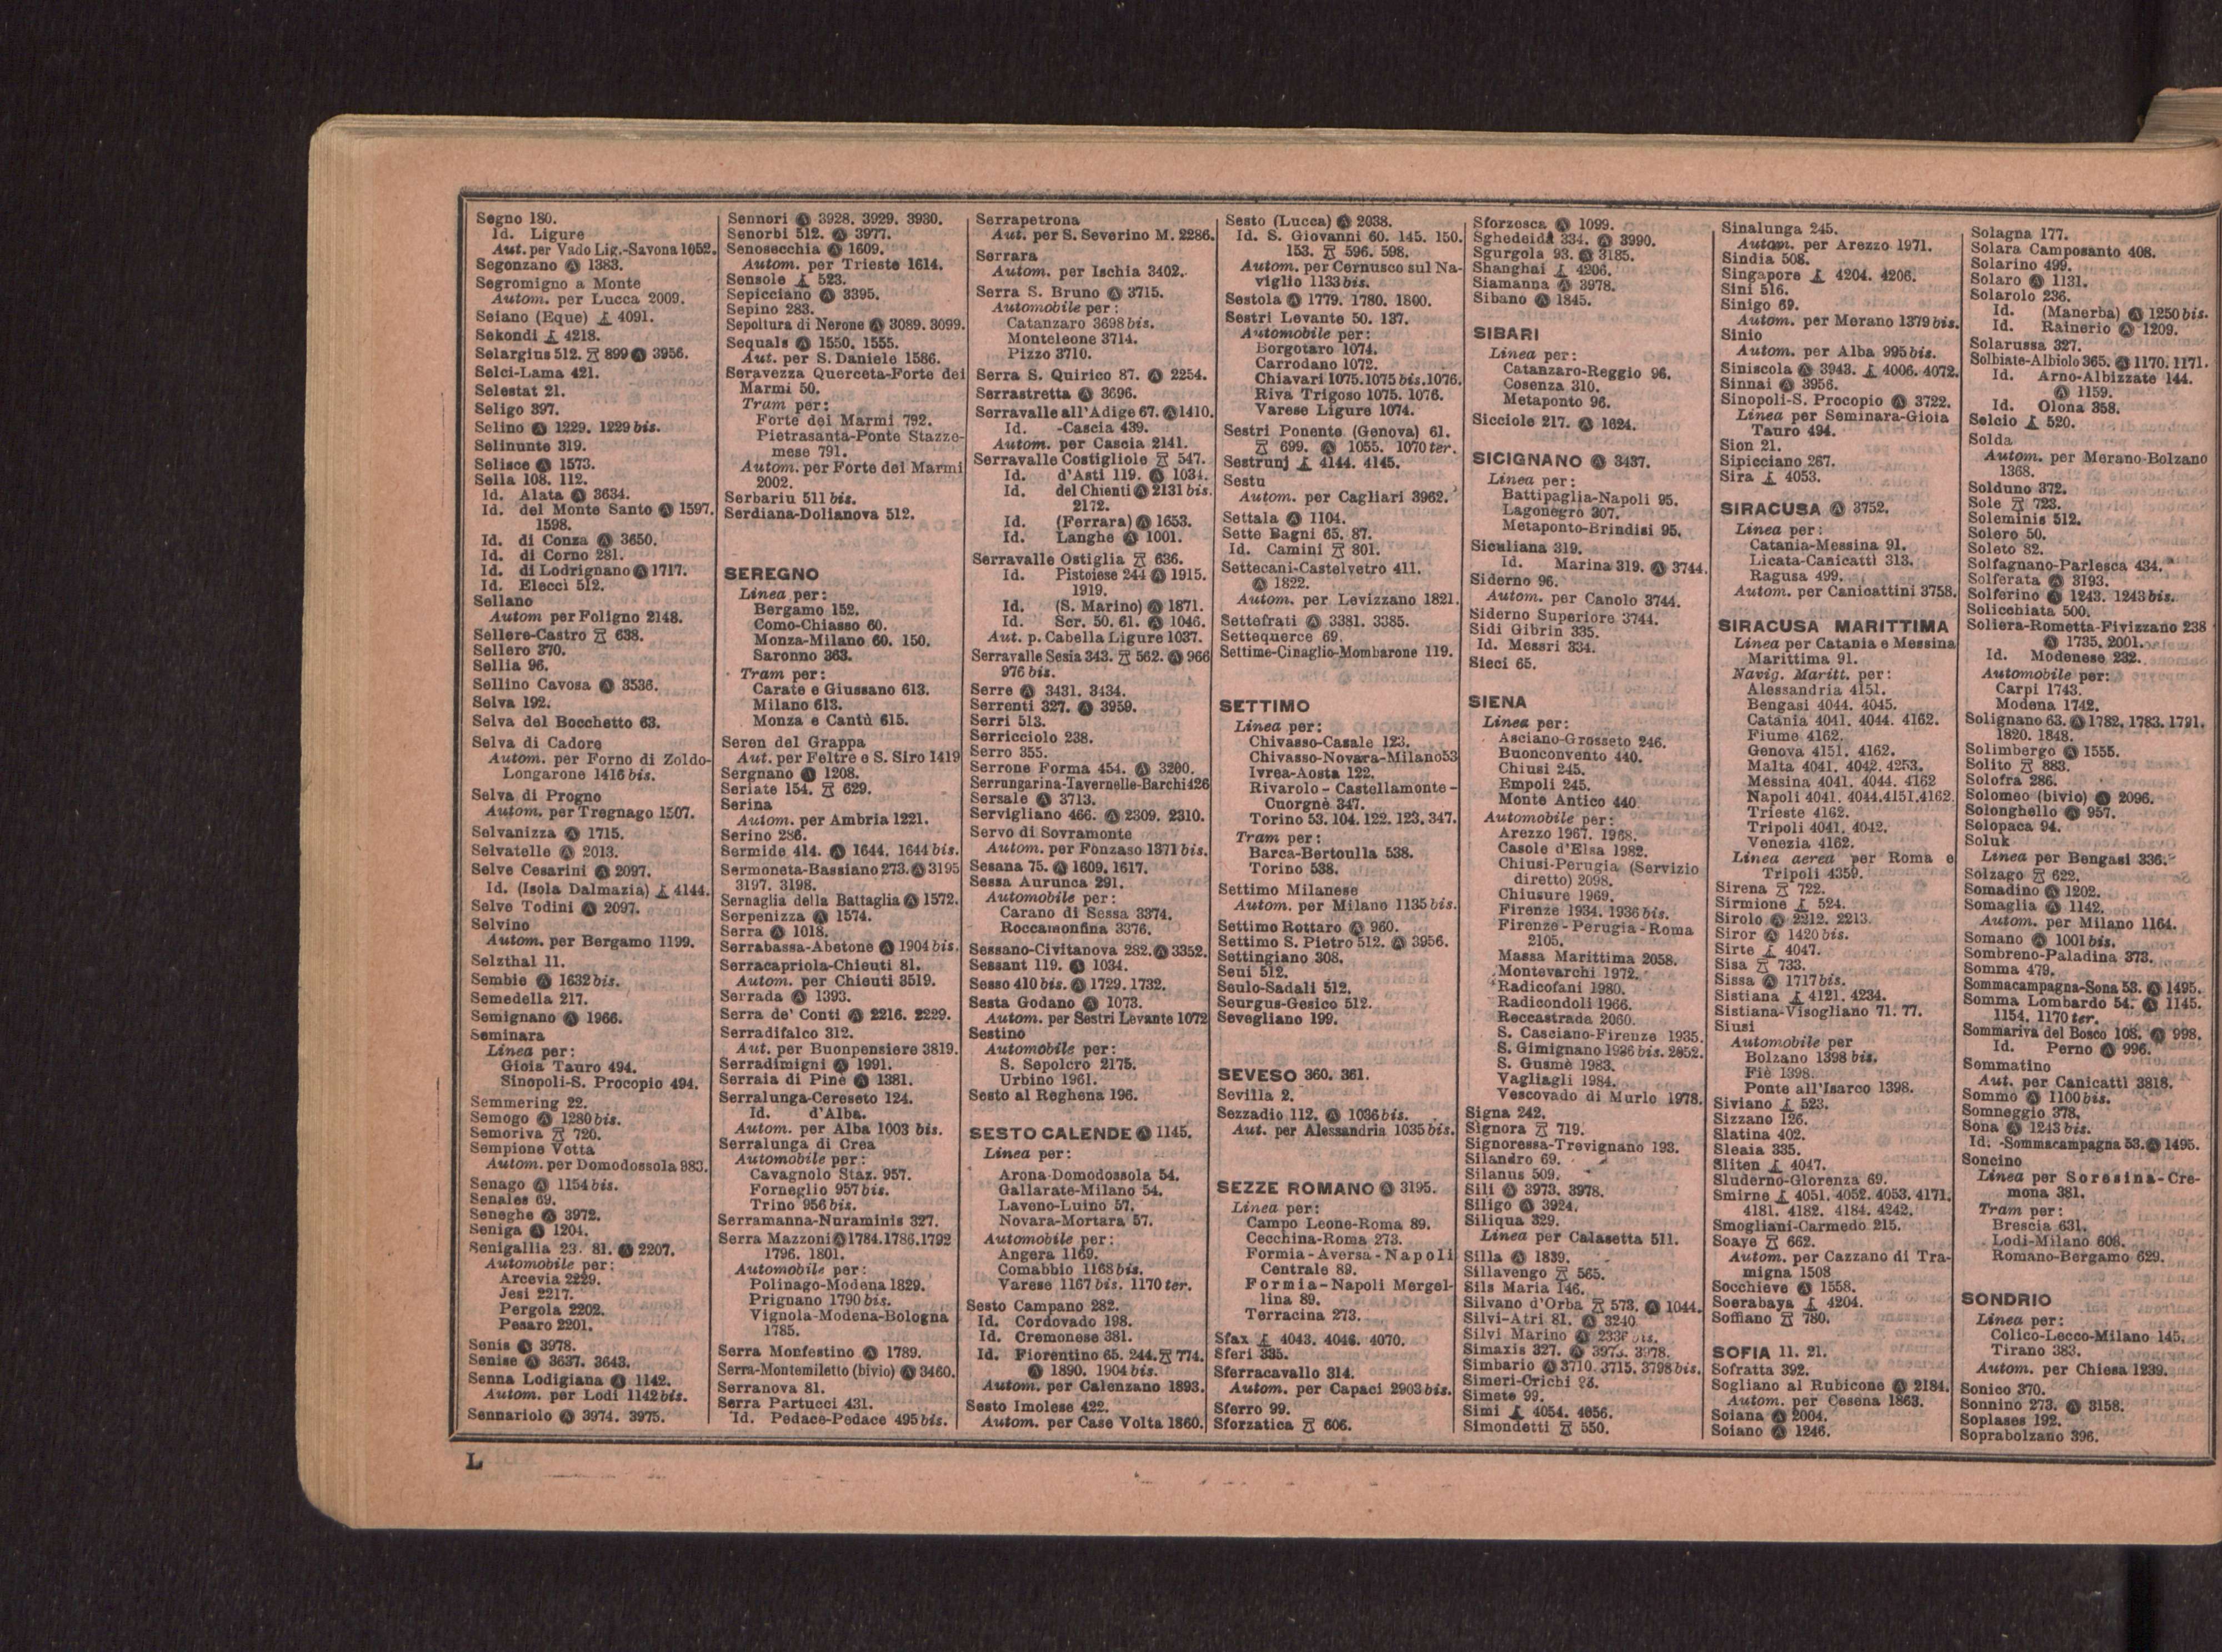 Segno 180.
Id. Ligure
Aut. per Vado Lig.-Savona 1052.
Segonzano Ⓐ 1383.
Segromigno a Monte
Autom. per Lucca 2009.
Seiano (Eque) ⚓ 4091.
Sekondi ⚓ 4218.
Selargius 512. 🚊 899 Ⓐ 3956.
Selci-Lama 421.
Selestat 21.
Seligo 397.
Selino Ⓐ 1229. 1229 bis.
Selinunte 319.
Selisce Ⓐ 1573.
Sella 108. 112.
Id. Alata Ⓐ 3634.
Id. del Monte Santo Ⓐ 1597.
1598.
Id. di Conza Ⓐ 3650.
Id. di Corno 281.
Id. di Lodrignano Ⓐ 1717.
Id. Elecci 512.
Sellano
Autom per Foligno 2148.
Sellere-Castro 🚊 638.
Sellero 370.
Sellia 96.
Sellino Cavosa Ⓐ 3536.
Selva 192.
Selva del Bocchetto 63.
Selva di Cadore
Autom. per Forno di Zoldo-
Longarone 1416 bis.
Selva di Progno
Autom. per Tregnago 1507.
Selvanizza Ⓐ 1715.
Selvatelle Ⓐ 2013.
Selve Cesarini Ⓐ 2097.
Id. (Isola Dalmazia) ⚓ 4144.
Selve Todini Ⓐ 2097.
Selvino
Autom. per Bergamo 1199.
Selzthal 11.
Sembie Ⓐ 1632 bis.
Semedella 217.
Semignano Ⓐ 1966.
Seminara
Linea per:
Gioia Tauro 494.
Sinopoli-S. Procopio 494.
Semmering 22.
Semogo Ⓐ 1280 bis.
Semoriva 🚊 720.
Sempione Vetta
Autom. per Domodossola 983.
Senago Ⓐ 1154 bis.
Senales 69.
Seneghe Ⓐ 3972.
Seniga Ⓐ 1204.
Senigallia 23. 81. Ⓐ 2207.
Automobile per:
Arcevia 2229.
Jesi 2217.
Pergola 2202.
Pesaro 2201.
Senis Ⓐ 3978.
Senise Ⓐ 3637. 3643.
Senna Lodigiana Ⓐ 1142.
Autom. per Lodi 1142 bis.
Sennariolo Ⓐ 3974. 3975.
Sennori Ⓐ 3928. 3929. 3930.
Senorbi 512. Ⓐ 3977.
Senosecchia Ⓐ 1609.
Autom. per Trieste 1614.
Sensole ⚓ 523.
Sepicciano Ⓐ 3395.
Sepino 283.
Sepoltura di Nerone Ⓐ 3089. 3099.
Sequals Ⓐ 1550. 1555.
Aut. per S. Daniele 1586.
Seravezza Querceta-Forte dei
Marmi 50.
Tram per:
Forte dei Marmi 792.
Pietrasanta-Ponte Stazze-
mese 791.
Autom. per Forte dei Marmi
2002.
Serbariu 511 bis.
Serdiana-Dolianova 512.
SEREGNO
Linea per:
Bergamo 152.
Como-Chiasso 60.
Monza-Milano 60. 150.
Saronno 363.
Tram per:
Carate e Giussano 613.
Milano 613.
Monza e Cantù 615.
Seren del Grappa
Aut. per Feltre e S. Siro 1419
Sergnano Ⓐ 1208.
Seriate 154. 🚊 629.
Serina
Autom. per Ambria 1221.
Serino 286.
Sermide 414. Ⓐ 1644. 1644 bis.
Sermoneta-Bassiano 273. Ⓐ 3195
3197. 3198.
Sernaglia della Battaglia Ⓐ 1572.
Serpenizza Ⓐ 1574.
Serra Ⓐ 1018.
Serrabassa-Abetone Ⓐ 1904 bis.
Serracapriola-Chieuti 81.
Autom. per Chieuti 3519.
Serrada Ⓐ 1393.
Serra de' Conti Ⓐ 2216. 2229.
Serradifalco 312.
Aut. per Buonpensiere 3819.
Serradimigni Ⓐ 1991.
Serraia di Pinè Ⓐ 1381.
Serralunga-Cereseto 124.
Id. d'Alba.
Autom. per Alba 1003 bis.
Serralunga di Crea
Automobile per:
Cavagnolo Staz. 957.
Forneglio 957 bis.
Trino 956 bis.
Serramanna-Nuraminis 327.
Serra Mazzoni Ⓐ 1784. 1786. 1792
1796. 1801.
Automobile per:
Polinago-Modena 1829.
Prignano 1790 bis.
Vignola-Modena-Bologna
1785.
Serra Monfestino Ⓐ 1789.
Serra-Montemiletto (bivio) Ⓐ 3460.
Serranova 81.
Serra Partucci 431.
Id. Pedace-Pedace 495 bis.
Serrapetrona
Aut. per S. Severino M. 2286.
Serrara
Autom. per Ischia 3402.
Serra S. Bruno Ⓐ 3715.
Automobile per:
Catanzaro 3698 bis.
Monteleone 3714.
Pizzo 3710.
Serra S. Quirico 87. Ⓐ 2254.
Serrastretta Ⓐ 3696.
Serravalle all'Adige 67. Ⓐ 1410.
Id. -Cascia 439.
Autom. per Cascia 2141.
Serravalle Costigliole 🚊 547.
Id. d'Asti 119. Ⓐ 1034.
Id. del Chienti Ⓐ 2131 bis.
2172.
Id. (Ferrara) Ⓐ 1653.
Id. Langhe Ⓐ 1001.
Serravalle Ostiglia 🚊 636.
Id. Pistoiese 244 Ⓐ 1915.
1919.
Id. (S. Marino) Ⓐ 1871.
Id. Scr. 50. 61. Ⓐ 1046.
Aut. p. Cabella Ligure 1037.
Serravalle Sesia 343. 🚊 562. Ⓐ 966
976 bis.
Serre Ⓐ 3431. 3434.
Serrenti 327. Ⓐ 3959.
Serri 513.
Serricciolo 238.
Serro 355.
Serrone Forma 454. Ⓐ 3200.
Serrungarina-Tavernelle-Barchi 426
Sersale Ⓐ 3713.
Servigliano 466. Ⓐ 2309. 2310.
Servo di Sovramonte
Autom. per Fonzaso 1371 bis.
Sesana 75. Ⓐ 1609. 1617.
Sessa Aurunca 291.
Automobile per:
Carano di Sessa 3374.
Roccamonfina 3376.
Sessano-Civitanova 282. Ⓐ 3352.
Sessant 119. Ⓐ 1034.
Sesso 410 bis. Ⓐ 1729. 1732.
Sesta Godano Ⓐ 1073.
Autom. per Sestri Levante 1072
Sestino
Automobile per:
S. Sepolcro 2175.
Urbino 1961.
Sesto al Reghena 196.
SESTO CALENDE Ⓐ 1145.
Linea per:
Arona-Domodossola 54.
Gallarate-Milano 54.
Laveno-Luino 57.
Novara-Mortara 57.
Automobile per:
Angera 1169.
Comabbio 1168 bis.
Varese 1167 bis. 1170 ter.
Sesto Campano 282.
Id. Cordovado 198.
Id. Cremonese 381.
Id. Fiorentino 65. 244. 🚊 774.
Ⓐ 1890. 1904 bis.
Autom. per Calenzano 1893.
Sesto Imolese 422.
Autom. per Case Volta 1860.
Sesto (Lucca) Ⓐ 2038.
Id. S. Giovanni 60. 145. 150.
153. 🚊 596. 598.
Autom. per Cernusco sul Na-
viglio 1133 bis.
Sestola Ⓐ 1779. 1780. 1800.
Sestri Levante 50. 137.
Automobile per:
Borgotaro 1074.
Carrodano 1072.
Chiavari 1075. 1075 bis. 1076.
Riva Trigoso 1075. 1076.
Varese Ligure 1074.
Sestri Ponente (Genova) 61.
🚊 699. Ⓐ 1055. 1070 ter.
Sestrunj ⚓ 4144. 4145.
Sestu
Autom. per Cagliari 3962.
Settala Ⓐ 1104.
Sette Bagni 65. 87.
Id. Camini 🚊 801.
Settecani-Castelvetro 411.
Ⓐ 1822.
Autom. per Levizzano 1821.
Settefrati Ⓐ 3381. 3385.
Settequerce 69.
Settime-Cinaglio-Mombarone 119.
SETTIMO
Linea per:
Chivasso-Casale 123.
Chivasso-Novara-Milano 53
Ivrea-Aosta 122.
Rivarolo - Castellamonte -
Cuorgnè 347.
Torino 53. 104. 122. 123. 347.
Tram per:
Barca-Bertoulla 538.
Torino 538.
Settimo Milanese
Autom. per Milano 1135 bis.
Settimo Rottaro Ⓐ 960.
Settimo S. Pietro 512. Ⓐ 3956.
Settingiano 308.
Seui 512.
Seulo-Sadali 512.
Seurgus-Gesico 512.
Sevegliano 199.
SEVESO 360. 361.
Sevilla 2.
Sezzadio 112. Ⓐ 1036 bis.
Aut. per Alessandria 1035 bis.
SEZZE ROMANO Ⓐ 3195.
Linea per:
Campo Leone-Roma 89.
Cecchina-Roma 273.
Formia-Aversa-Napoli
Centrale 89.
Formia-Napoli Mergel-
lina 89.
Terracina 273.
Sfax ⚓ 4043. 4046. 4070.
Sferi 335.
Sferracavallo 314.
Autom. per Capaci 2903 bis.
Sferro 99.
Sforzatica 🚊 606.
Sforzesca Ⓐ 1099.
Sghedeida 334. Ⓐ 3990.
Sgurgola 93. Ⓐ 3185.
Shanghai ⚓ 4206.
Siamanna Ⓐ 3978.
Sibano Ⓐ 1845.
SIBARI
Linea per:
Catanzaro-Reggio 96.
Cosenza 310.
Metaponto 96.
Sicciole 217. Ⓐ 1624.
SICIGNANO Ⓐ 3437.
Linea per:
Battipaglia-Napoli 95.
Lagonegro 307.
Metaponto-Brindisi 95.
Siculiana 319.
Id. Marina 319. Ⓐ 3744.
Siderno 96.
Autom. per Canolo 3744.
Siderno Superiore 3744.
Sidi Gibrin 335.
Id. Messri 334.
Sieci 65.
SIENA
Linea per:
Asciano-Grosseto 246.
Buonconvento 440.
Chiusi 245.
Empoli 245.
Monte Antico 440.
Automobile per:
Arezzo 1967. 1968.
Casole d'Elsa 1982.
Chiusi-Perugia (Servizio
diretto) 2098.
Chiusure 1969.
Firenze 1934. 1936 bis.
Firenze-Perugia-Roma
2105.
Massa Marittima 2058.
Montevarchi 1972.
Radicofani 1980.
Radicondoli 1966.
Roccastrada 2060.
S. Casciano-Firenze 1935.
S. Gimignano 1936 bis. 2052.
S. Gusmè 1983.
Vagliagli 1984.
Vescovado di Murlo 1978.
Signa 242.
Signora 🚊 719.
Signoressa-Trevignano 193.
Silandro 69.
Silanus 509.
Sili Ⓐ 3973. 3978.
Siligo Ⓐ 3924.
Siliqua 329.
Linea per Calasetta 511.
Silla Ⓐ 1839.
Sillavengo 🚊 565.
Sils Maria 146.
Silvano d'Orba 🚊 573. Ⓐ 1044.
Silvi-Atri 81. Ⓐ 3240.
Silvi Marino Ⓐ
Simaxis 327. Ⓐ 3978.
Simbario Ⓐ 3710. 3715. 3798 bis.
Simeri-Crichi
Simeto 99.
Simi ⚓ 4054. 4056.
Simondetti 🚊 550.
Sinalunga 245.
Autom. per Arezzo 1971.
Sindia 508.
Singapore ⚓ 4204. 4206.
Sini 516.
Sinigo 69.
Autom. per Merano 1379 bis.
Sinio
Autom. per Alba 995 bis.
Siniscola Ⓐ 3943. ⚓ 4006. 4072.
Sinnai Ⓐ 3956.
Sinopoli-S. Procopio Ⓐ 3722.
Linea per Seminara-Gioia
Tauro 494.
Sion 21.
Sipicciano 267.
Sira ⚓ 4053.
SIRACUSA Ⓐ 3752.
Linea per:
Catania-Messina 91.
Licata-Canicattì 313.
Ragusa 499.
Autom. per Canicattini 3758.
SIRACUSA MARITTIMA
Linea per Catania e Messina
Marittima 91.
Navig. Maritt. per:
Alessandria 4151.
Bengasi 4044. 4045.
Catania 4041. 4044. 4162.
Fiume 4162.
Genova 4151. 4162.
Malta 4041. 4042. 4253.
Messina 4041. 4044. 4162
Napoli 4041. 4044. 4151. 4162.
Trieste 4162.
Tripoli 4041. 4042.
Venezia 4162.
Linea aerea per Roma e
Tripoli 4359.
Sirena 🚊 722.
Sirmione ⚓ 524.
Sirolo Ⓐ 2212. 2213.
Siror Ⓐ 1420 bis.
Sirte ⚓ 4047.
Sisa 🚊 733.
Sissa Ⓐ 1717 bis.
Sistiana ⚓ 4121. 4234.
Sistiana-Visogliano 71. 77.
Siusi
Automobile per
Bolzano 1398 bis.
Fiè 1398.
Ponte all'Isarco 1398.
Siviano ⚓ 523.
Sizzano 126.
Slatina 402.
Sleaia 335.
Sliten ⚓ 4047.
Sluderno-Glorenza 69.
Smirne ⚓ 4051. 4052. 4053. 4171.
4181. 4182. 4184. 4242.
Smogliani-Carmedo 215.
Soave 🚊 662.
Autom. per Cazzano di Tra-
migna 1508
Socchieve Ⓐ 1558.
Soerabaya ⚓ 4204.
Soffiano 🚊 780.
SOFIA 11. 21.
Sofratta 392.
Sogliano al Rubicone Ⓐ 2184.
Autom. per Cesena 1863.
Soiana Ⓐ 2004.
Soiano Ⓐ 1246.
Solagna 177.
Solara Camposanto 408.
Solarino 499.
Solaro Ⓐ 1131.
Solarolo 236.
Id. (Manerba) Ⓐ 1250 bis.
Id. Rainerio Ⓐ 1209.
Solarussa 327.
Solbiate-Albiolo 365. Ⓐ 1170. 1171.
Id. Arno-Albizzate 144.
Ⓐ 1159.
Id. Olona 358.
Solcio ⚓ 520.
Solda
Autom. per Merano-Bolzano
1368.
Solduno 372.
Sole 🚊 723.
Soleminis 512.
Solero 50.
Soleto 82.
Solfagnano-Parlesca 434.
Solferata Ⓐ 3193.
Solferino Ⓐ 1243. 1243 bis.
Solicchiata 500.
Soliera-Rometta-Fivizzano 238
Ⓐ 1735. 2001.
Id. Modenese 232.
Automobile per:
Carpi 1743.
Modena 1742.
Solignano 63. Ⓐ 1782. 1783. 1791.
1820. 1848.
Solimbergo Ⓐ 1555.
Solito 🚊 883.
Solofra 286.
Solomeo (bivio) Ⓐ 2096.
Solonghello Ⓐ 957.
Solopaca 94.
Soluk
Linea per Bengasi 336.
Solzago 🚊 622.
Somadino Ⓐ 1202.
Somaglia Ⓐ 1142.
Autom. per Milano 1164.
Somano Ⓐ 1001 bis.
Sombreno-Paladina 373.
Somma 479.
Sommacampagna-Sona 53. Ⓐ 1495.
Somma Lombardo 54. Ⓐ 1145.
1154. 1170 ter.
Sommariva del Bosco 108. Ⓐ 998.
Id. Perno Ⓐ 996.
Sommatino
Aut. per Canicattì 3818.
Sommo Ⓐ 1100 bis.
Somneggio 378.
Sona Ⓐ 1243 bis.
Id. -Sommacampagna 53. Ⓐ 1495.
Soncino
Linea per Soresina-Cre-
mona 381.
Tram per:
Brescia 631.
Lodi-Milano 608.
Romano-Bergamo 629.
SONDRIO
Linea per:
Colico-Lecco-Milano 145.
Tirano 383.
Autom. per Chiesa 1239.
Sonico 370.
Sonnino 273. Ⓐ 3158.
Soplases 192.
Soprabolzano 396.
L